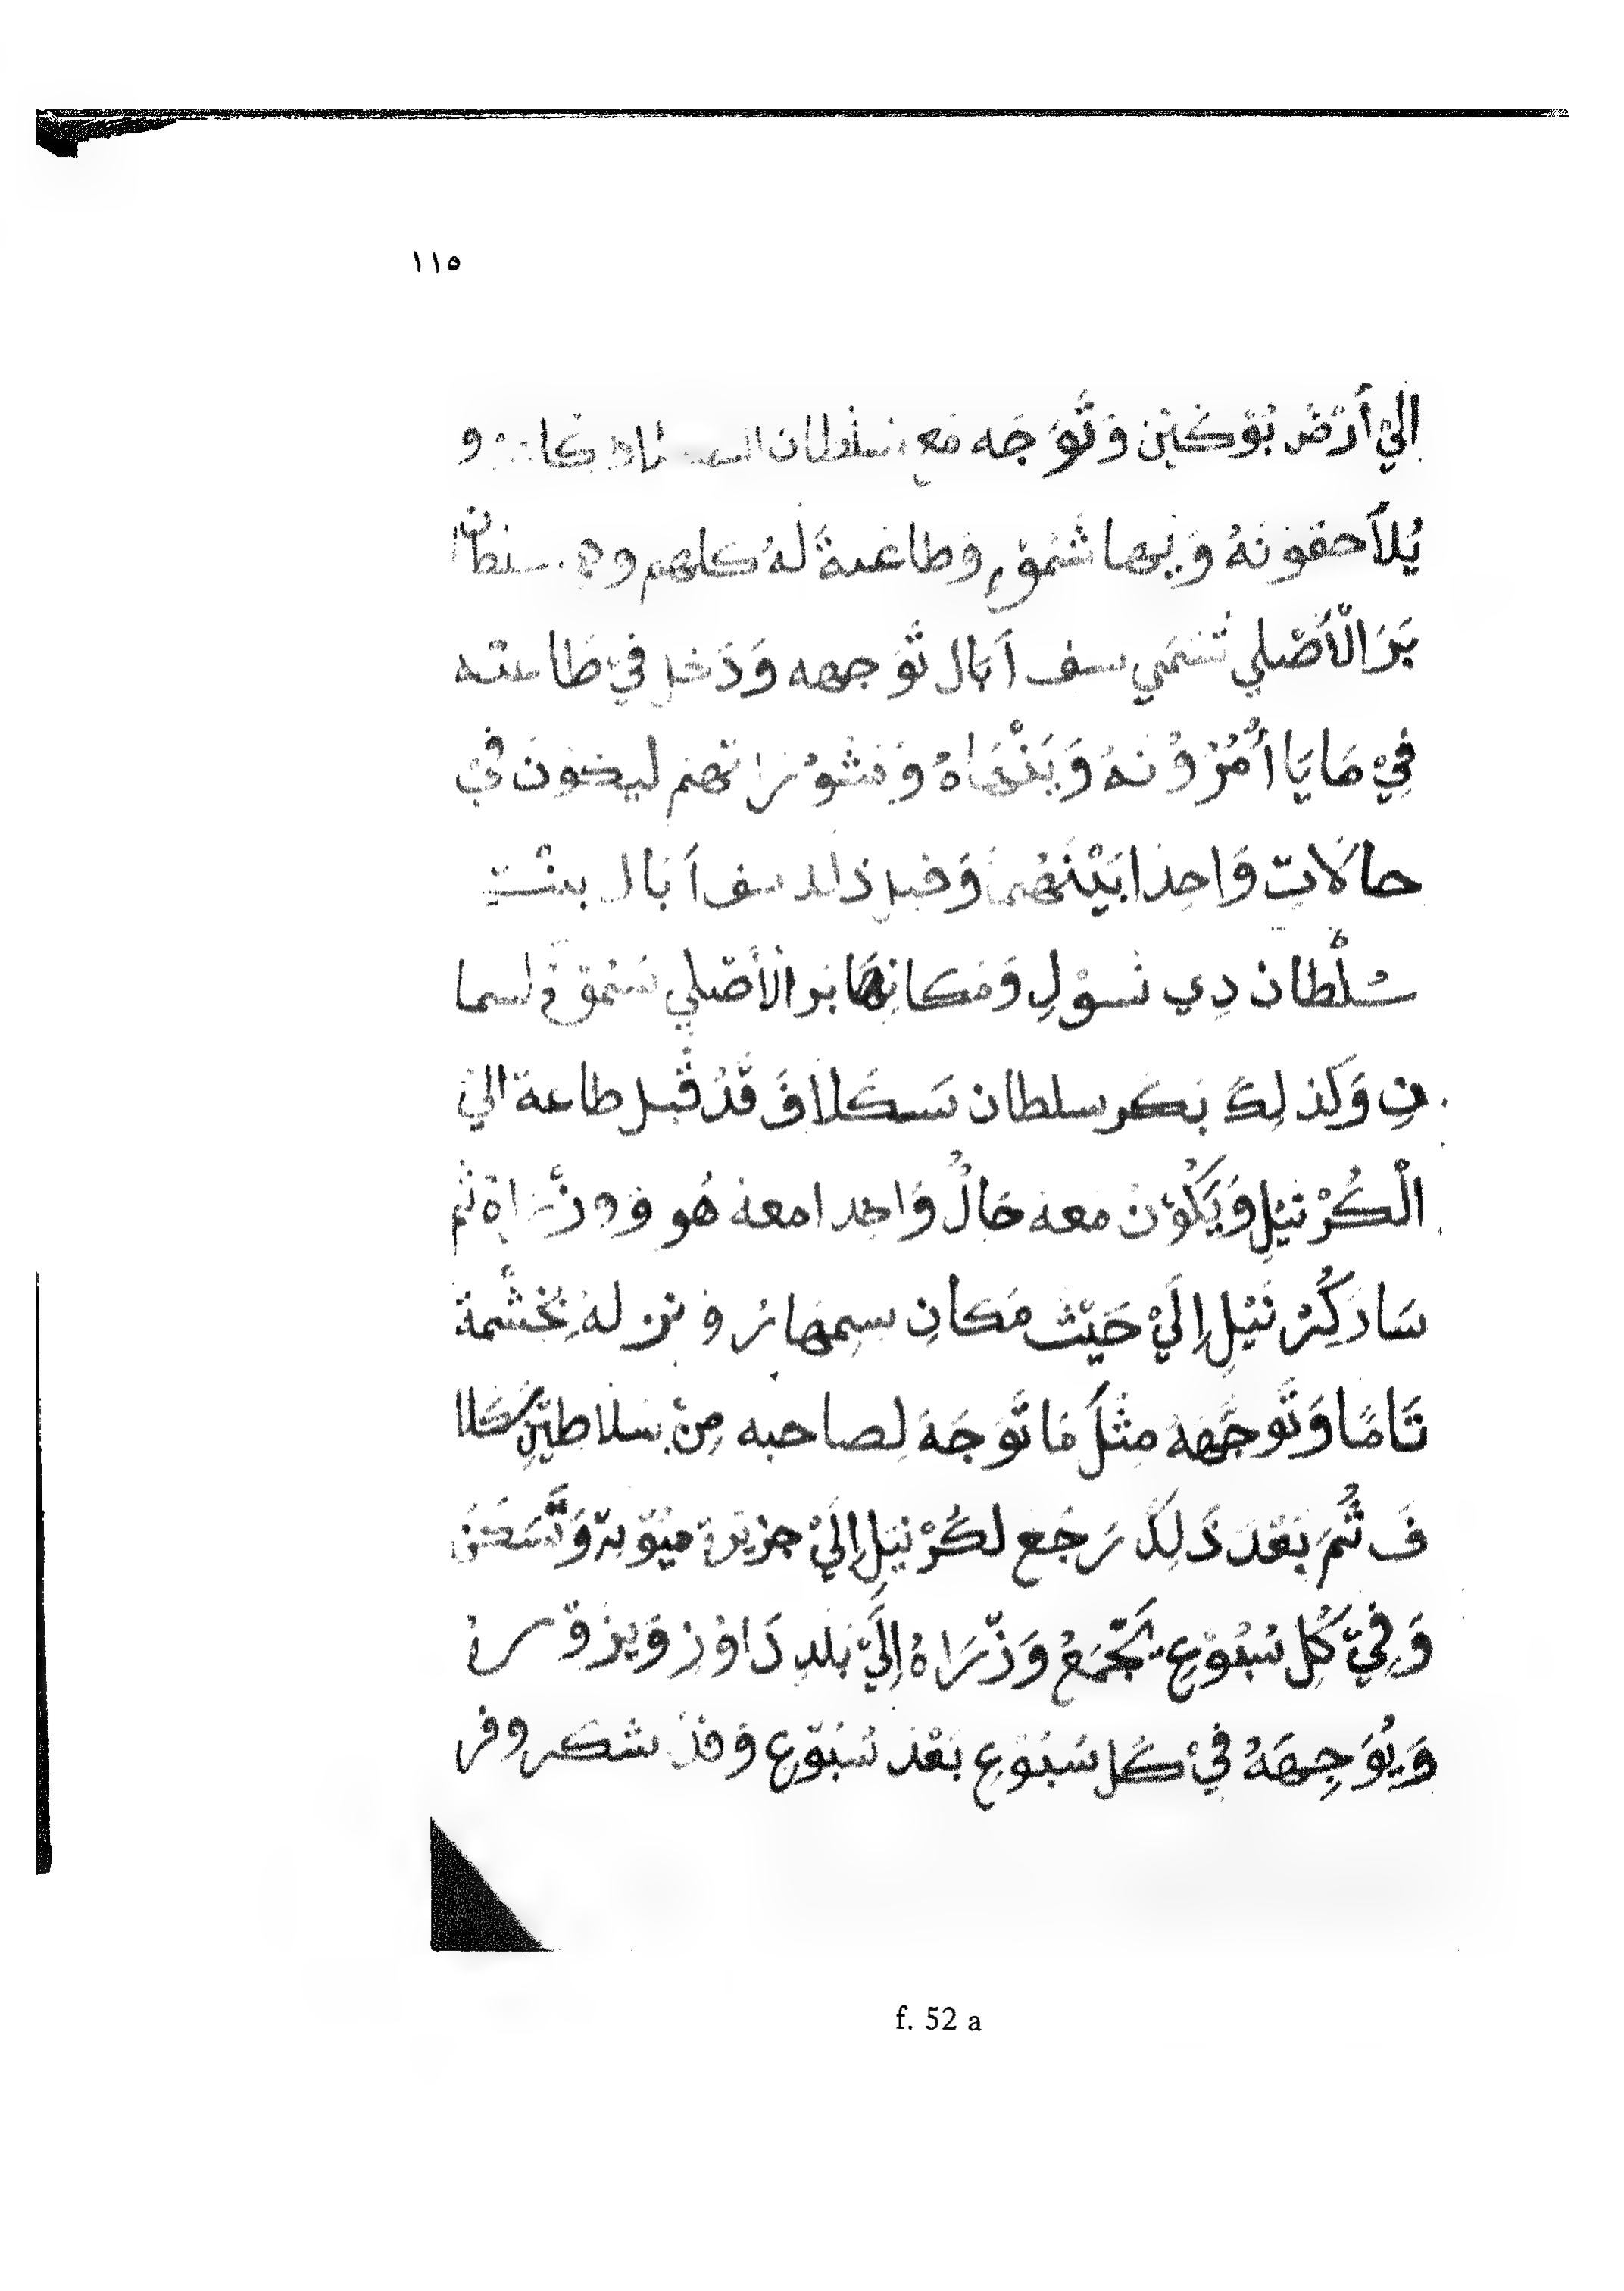 ١١٥
اليْ أَرْضْ بُوْكَيْنْ وَتَّوَجَه مَع سلطان كا و
يُلَاحقونَهُ وَنبها شمُوْءٍ وَطاعة لَهُ كلهم سلطان
بَرَ الْأَصْلي تُسَمَي سف آبَال تَّوَجهه وَدَخل فيْ طَاعته
فِيْ مَا يَا أَمُرُوْنَهُ وَيَنْهَاهُ وَ ليكون فيْ
حالَاتِ وَاحِدَا بَيْنَهُمَا وَقبل ذلك سف آبَال بنْت
سُلْطان دِي نسوْلِ وَمَكانِهَا بَر الْأَصْلي
نِ وَكَذلِكَ بَكَر سلطان سَكَلَافَ قَدْ قَبل طاعة اليْ
الْكُرْنَيْلِ وَيَكُوْنُ معهُ حَالُ وَاحد امعهُ هُو وَ ثُم
سَارَ كِرْنَيْلِ إِلَيْ حَيْث مَكانِ سِمهَارُ وَ نزلهُ بِحُشْمة
تَامًا وَتَّوجَّهَهُ مِثْلَ مَا تَّوَجَهَ لِصاحبه مِنْ سَلاطيْنِ سَكَلا
فَ ثُمَ بَعْدَ ذَلِكَ رَجَع لكُرْنَيْلِ إِلَيْ جزيرة ميُوْتة وَتَّسَكَنَ
وَفِيْ كُلِ سُبُوْعِ يَجْتَمَعْ وَزّرَاهُ إِلَيْ بَلدِ دَاوُز وَيزوْرهُ
وَيُوَجِهَهُ فيْ كَل سُبُوْعِ بَعْد سُبُوْعِ وَقدْ شكر وفر
f. 52 a